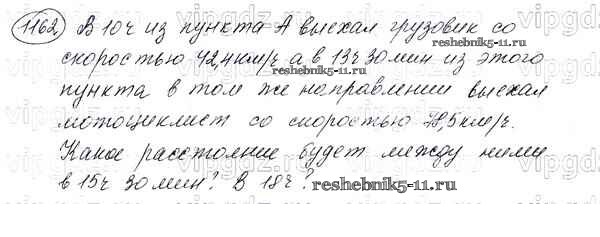 1162) В 10ч из пункта А выехал грузовик со
скоростью 42,4км/ч а в 13ч 30мин из этого
reshebnik5-11.ru
пункта в том же направлении выехал
мотоциклист со скоростью 78,5км/ч.
Какое расстояние будет между ними
в 15ч 30мин? В 18ч?
reshebnik5-11.ru